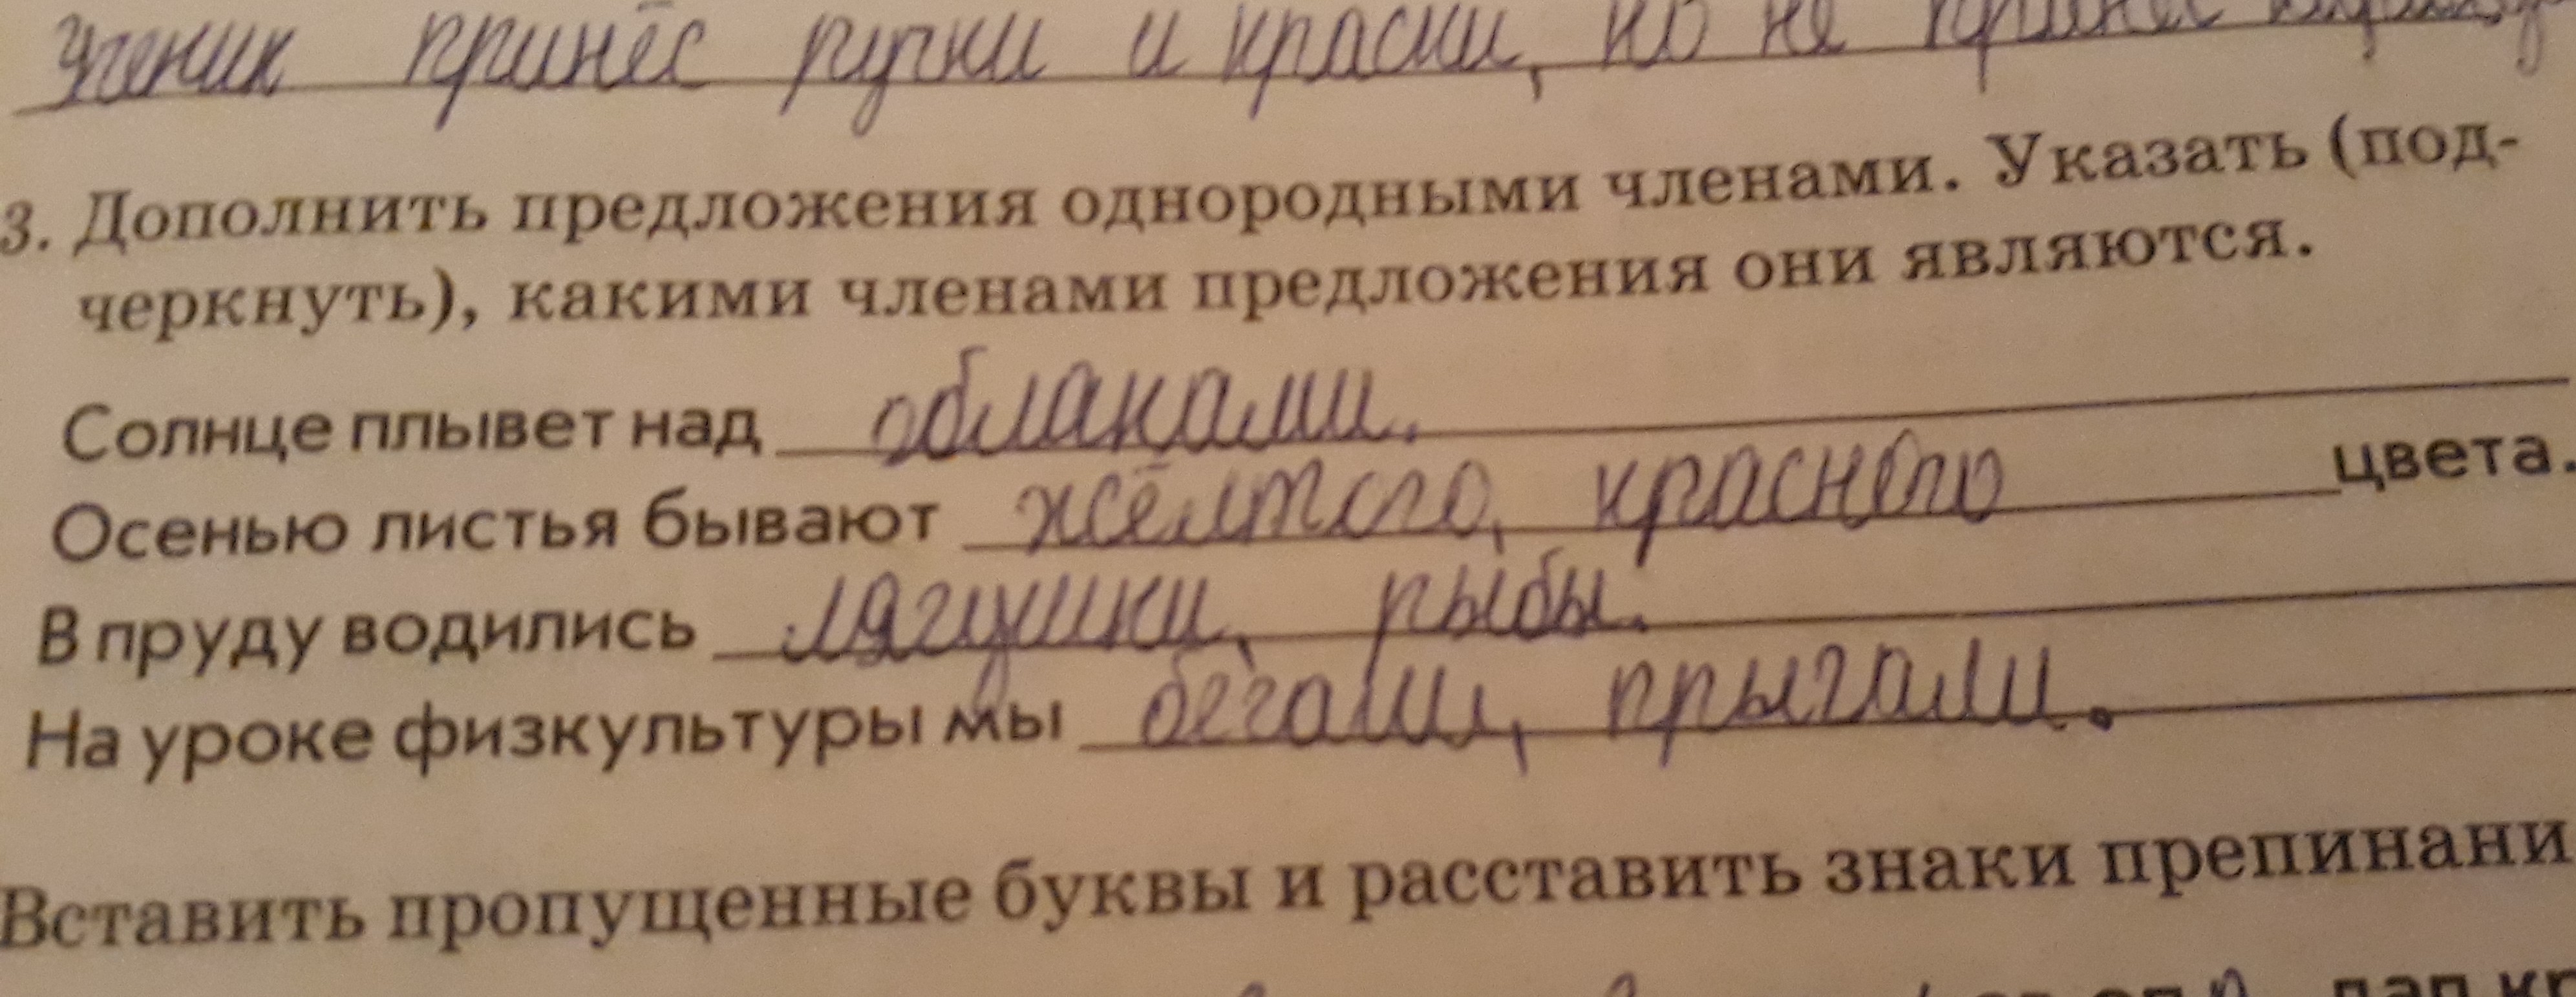 Ученик принёс ручки и краски, но не принёс
3. Дополнить предложения однородными членами. Указать (под-
черкнуть), какими членами предложения они являются.
Солнце плывет над облаками.
Осенью листья бывают жёлтого, красного цвета.
В пруду водились лягушки, рыбы.
На уроке физкультуры мы бегали, прыгали.
Вставить пропущенные буквы и расставить знаки препинани